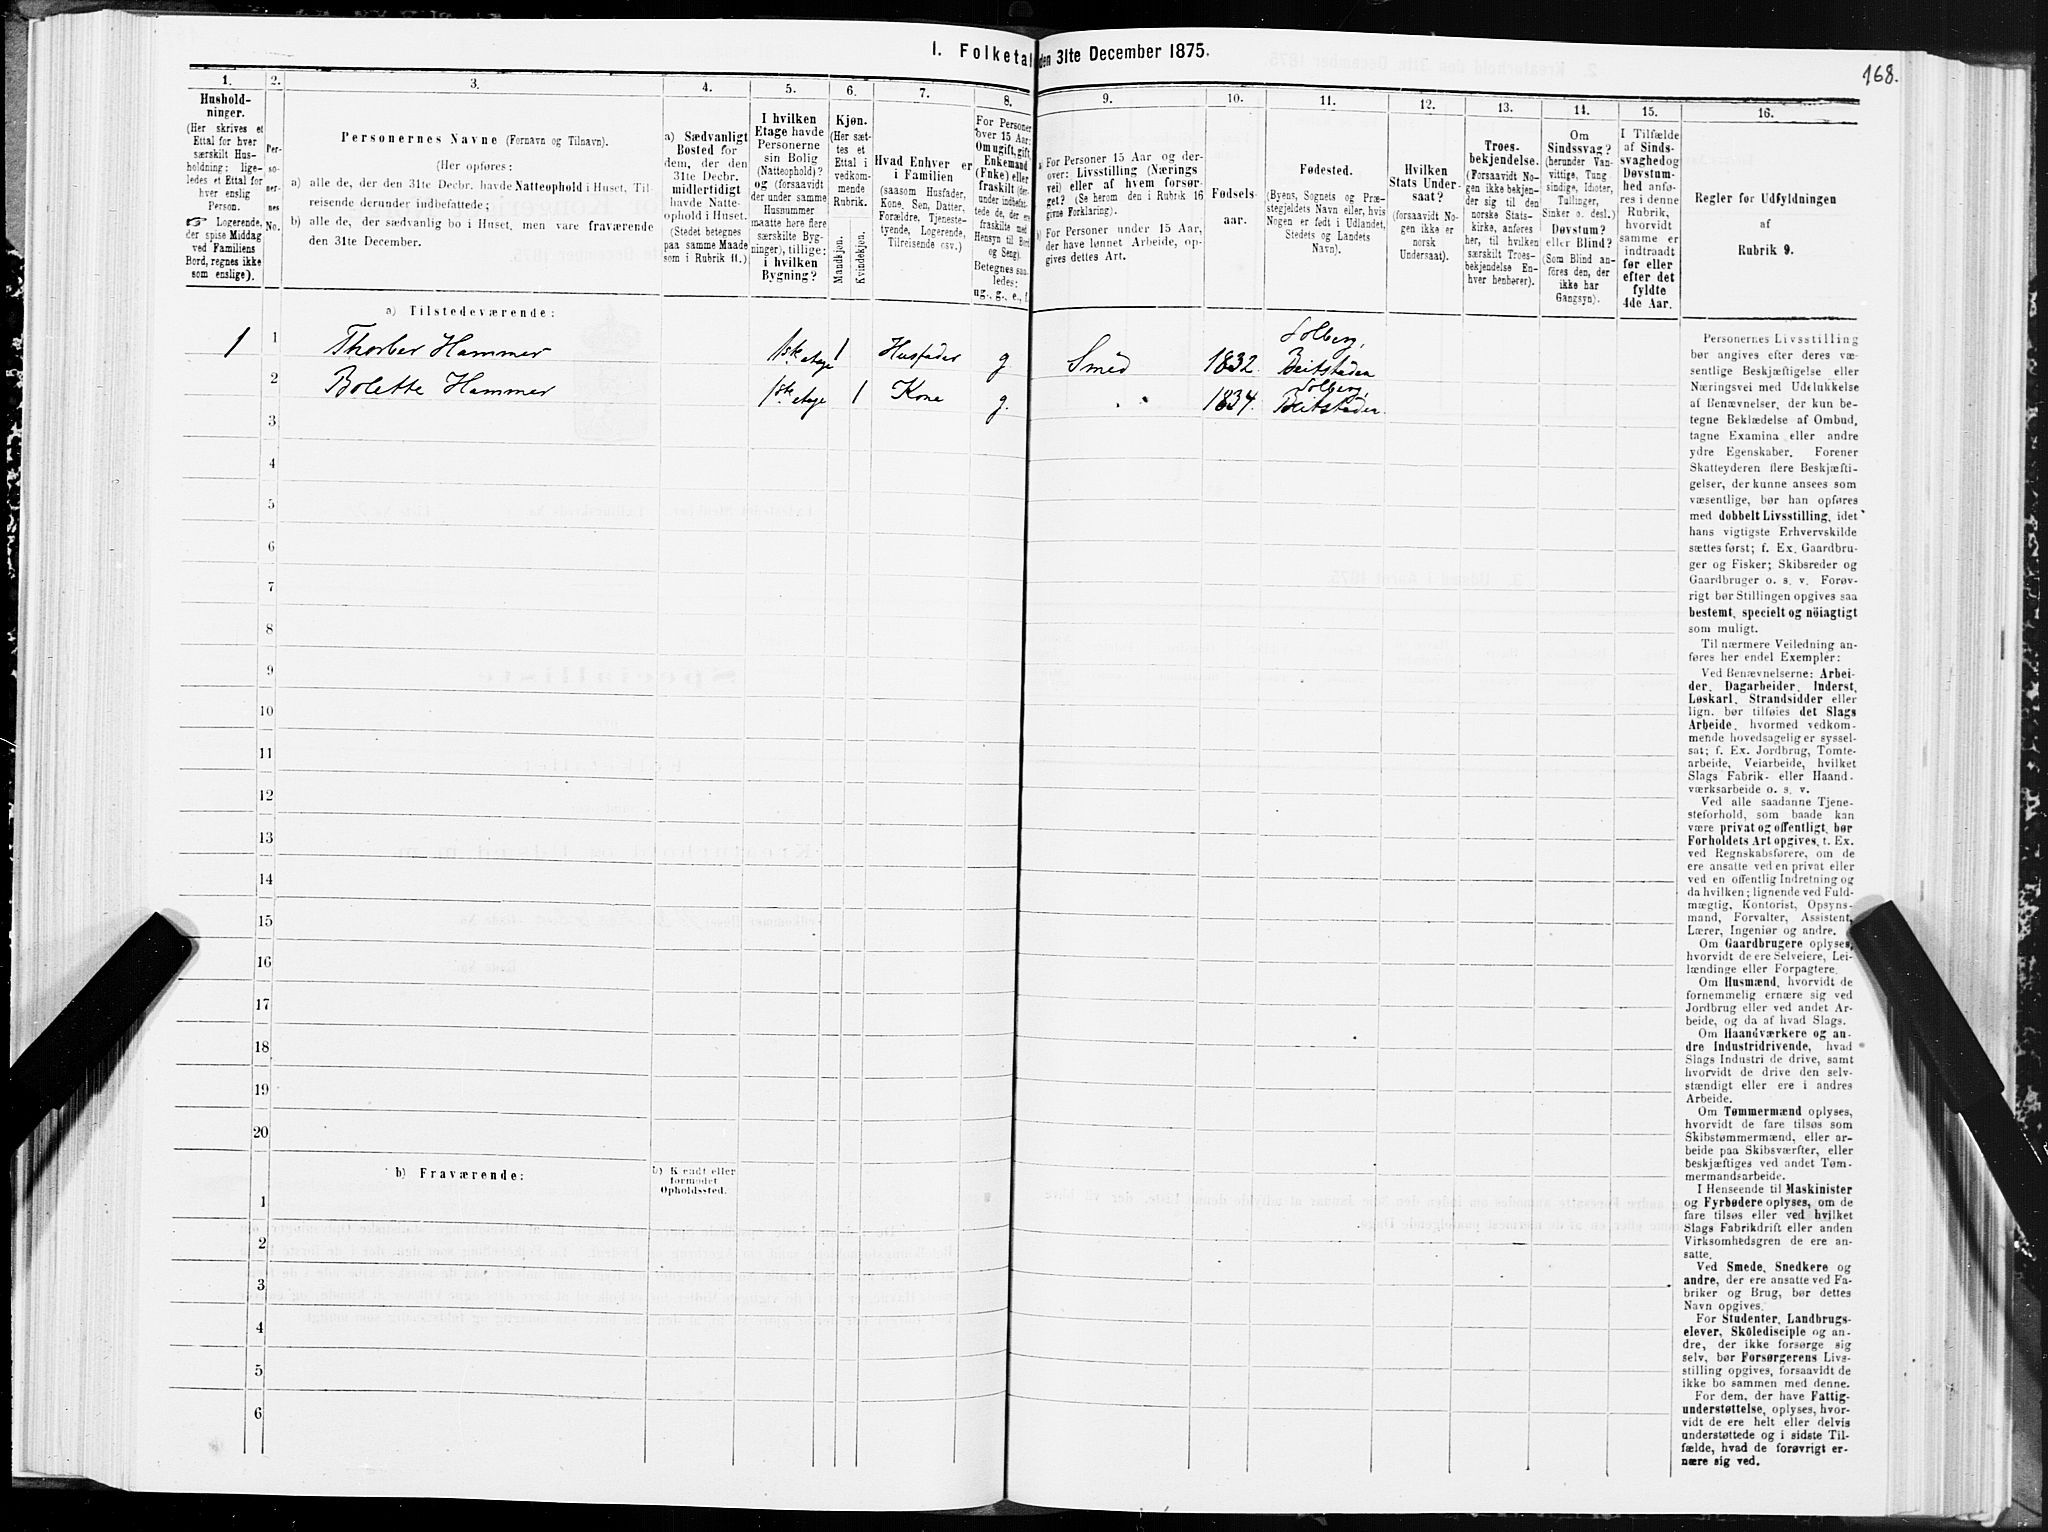 I. Folketal den 31te December 1875.
168.
1.
Hushold-
ninger.
(Her skrives et
Ettal for hver
særskilt Hus-
holdning; lige-
ledes et Ettal for
hver enslig
Person.
☞ Logerende,
der spise Middag
ved Familiens
Bord, regnes ikke
som enslige).
2.
Per-
so-
ner-
nes
No.
3.
Personernes Navne (Fornavn og Tilnavn).
(Her opføres:
a) alle de, der den 31te Decbr. havde Natteophold i Huset, Til-
reisende derunder indbefattede;
b) alle de, der sædvanlig bo i Huset, men vare fraværende
den 31te December.
4.
a) Sædvanligt
Bosted for
dem, der den
31te Decbr.
midlertidigt
havde Natte-
ophold i Huset.
(Stedet betegnes
paa samme Maade
som i Rubrik 11.)
5.
I hvilken
Etage havde
Personerne
sin Bolig
(Natteophold)?
og (forsaavidt
der under samme
Husnummer
maatte høre flere
særskilte Byg-
ninger), tillige:
i hvilken
Bygning?
6.
Kjøn.
(Her sæt-
tes et
Ettal i
vedkom-
mende
Rubrik.
Mandkjøn.
Kvindekjøn.
7.
Hvad Enhver er
i Familien
(saasom Husfader,
Kone, Søn, Datter,
Forældre, Tjeneste-
tyende, Logerende,
Tilreisende osv.)
8.
For Personer
over 15 Aar:
Om ugift, gift,
Enkemand
(Enke) eller
fraskilt (der-
under indbefat-
tede de, der ere
fraskilte med
Hensyn til Bord
og Seng).
Betegnes saa-
ledes:
ug., g., e., f.
9.
a) For Personer 15 Aar og der-
over: Livsstilling (Nærings
vei) eller af hvem forsør-
get? (Se herom den i Rubrik 16
givne Forklaring).
b) For Personer under 15 Aar,
der have lønnet Arbeide, op-
gives dettes Art.
10.
Fødsels-
aar.
11.
Fødested.
(Byens, Sognets og Præ-
stegjeldets Navn eller, hvis
Nogen er født i Udlandet,
Stedets og Landets
Navn).
12.
Hvilken
Stats Under-
saat?
(forsaavidt No-
gen ikke er
norsk
Undersaat).
13.
Troes-
bekjendelse.
(Forsaavidt No-
gen ikke bekjen-
der sig til den
norske Stats-
kirke, anføres
her, til hvilken
særskilt Troes-
bekjendelse En-
hver henhører).
14.
Om
Sindssvag?
(herunder Van-
vittige, Tung
sindige, Idioter,
Tullinger,
Sinker o. desl.)
Døvstum?
eller Blind?
(Som Blind an-
føres den, der
ikke har
Gangsyn).
15.
I Tilfælde
af Sinds-
svaghed og
Døvstum-
hed anfø-
res i denne
Rubrik,
hvorvidt
samme er
indtraadt
før eller
efter det
fyldte
4de Aar.
16.
Regler før Udfyldningen
af
Rubrik 9.
a) Tilstedeværende:
1 1 Thorber Hammer 1ste etage 1 Husfader g. Smed 1832. Solberg, Beitstaden
2 Bolette Hammer 1ste etage 1 Kone g. " 1834. Solberg, Beitstaden.
3
4
5
6
7
8
9
10
11
12
13
14
15
16
17
18
19
20
b) Fraværende:
b) Kjendt eller
formodet
Opholdssted.
1
2
3
4
5
6
Personernes Livsstilling
bør angives efter deres væ-
sentlige Beskjæftigelse eller
Næringsvei med Udelukkelse
af Benævnelser, der kun be-
tegne Beklædelse af Ombud,
tagne Examina eller andre
ydre Egenskaber. Forener
Skatteyderen flere Beskjæfti-
gelser, der kunne ansees som
væsentlige, bør han opføres
med dobbelt Livsstilling, idet
hans vigtigste Erhvervskilde
sættes først; f. Ex. Gaardbru-
ger og Fisker; Skibsreder og
Gaardbruger o. s. v. Forøv-
rigt bør Stillingen opgives saa
bestemt, specielt og nöiagtigt
som muligt.
Til nærmere Veiledning an-
føres her endel Exempler:
Ved Benævnelserne: Arbei-
der, Dagarbeider, Inderst,
Løskarl, Strandsidder eller
lign. bør tilføies det Slags
Arbeide, hvormed vedkom-
mende hovedsagelig er syssel-
sat; f. Ex. Jordbrug, Tomte-
arbeide, Veiarbeide, hvilket
Slags Fabrik- eller Haand-
værksarbeide o. s. v.
Ved alle saadanne Tjene-
steforhold, som baade kan
være privat og offentligt, bør
Forholdets Art opgives, t. Ex.
ved Regnskabsførere, om de
ere ansatte ved en privat eller
ved en offentlig Indretning og
da hvilken; lignende ved Fuld-
mægtig, Kontorist, Opsyns-
mand, Forvalter, Assistent,
Lærer, Ingeniør og andre.
Om Gaardbrugere oplyses,
hvorvidt de ere Selveiere, Lei-
lændinge eller Forpagtere.
Om Husmænd, hvorvidt de
fornemmelig ernære sig ved
Jordbrug eller ved andet Ar-
beide, og da af hvad Slags.
Om Haandværkere og an-
dre Industridrivende, hvad
Slags Industri de drive, samt
hvorvidt de drive den selv-
stændigt eller ere i andres
Arbeide.
Om Tømmermænd oplyses,
hvorvidt de fare tilsøs som
Skibstømmermænd, eller ar-
beide paa Skibsværfter, eller
beskjæftiges ved andet Tøm-
mermandsarbeide.
I Henseende til Maskinister
og Fyrbødere oplyses, om de
fare tilsøs eller ved hvilket
Slags Fabrikdrift eller anden
Virksomhedsgren de ere an-
satte.
Ved Smede, Snedkere og
andre, der ere ansatte ved Fa-
briker og Brug, bør dettes
Navn opgives.
For Studenter, Landbrugs-
elever, Skóledisciple og an-
dre, der ikke forsørge sig
selv, bør Forsørgerens Livs-
stilling opgives, forsaavidt de
ikke bo sammen med denne.
For dem, der have Fattig-
understøttelse, oplyses, hvor-
vidt de ere helt eller delvis
understøttede og i sidste Til-
fælde, hvad de forøvrigt er-
nære sig ved.